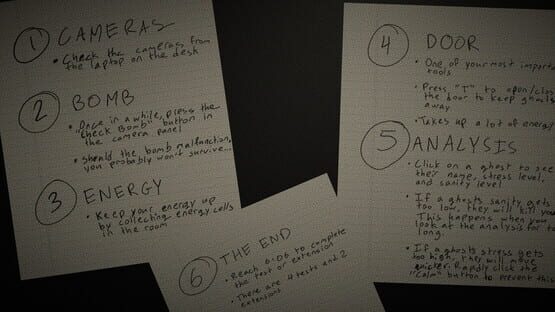 1 CAMERAS
• Check the cameras from
the laptop on the desk
2 BOMB
• Once in a while, press the
"Check Bomb" button in
the camera panel
• Should the bomb malfunction,
you probably won't survive...
3 ENERGY
• Keep your energy up
by collecting energy cells
in the room
4 DOOR
• One of your most importa
tools
• Press "T" to open/clos
the door to keep ghosts
away
• Takes up a lot of energy
5 ANALYSIS
• Click on a ghost to see
their name, stress level,
and sanity level
• If a ghosts sanity gets
too low, they will kill you
This happens when you
look at the analysis for to
long.
• If a ghosts stress gets
too high, they will move
quicker. Rapidly click the
"Calm" button to prevent this
6 THE END
• Reach 6:06 to complete
the test or extension
• There are 4 tests and 2
extensions